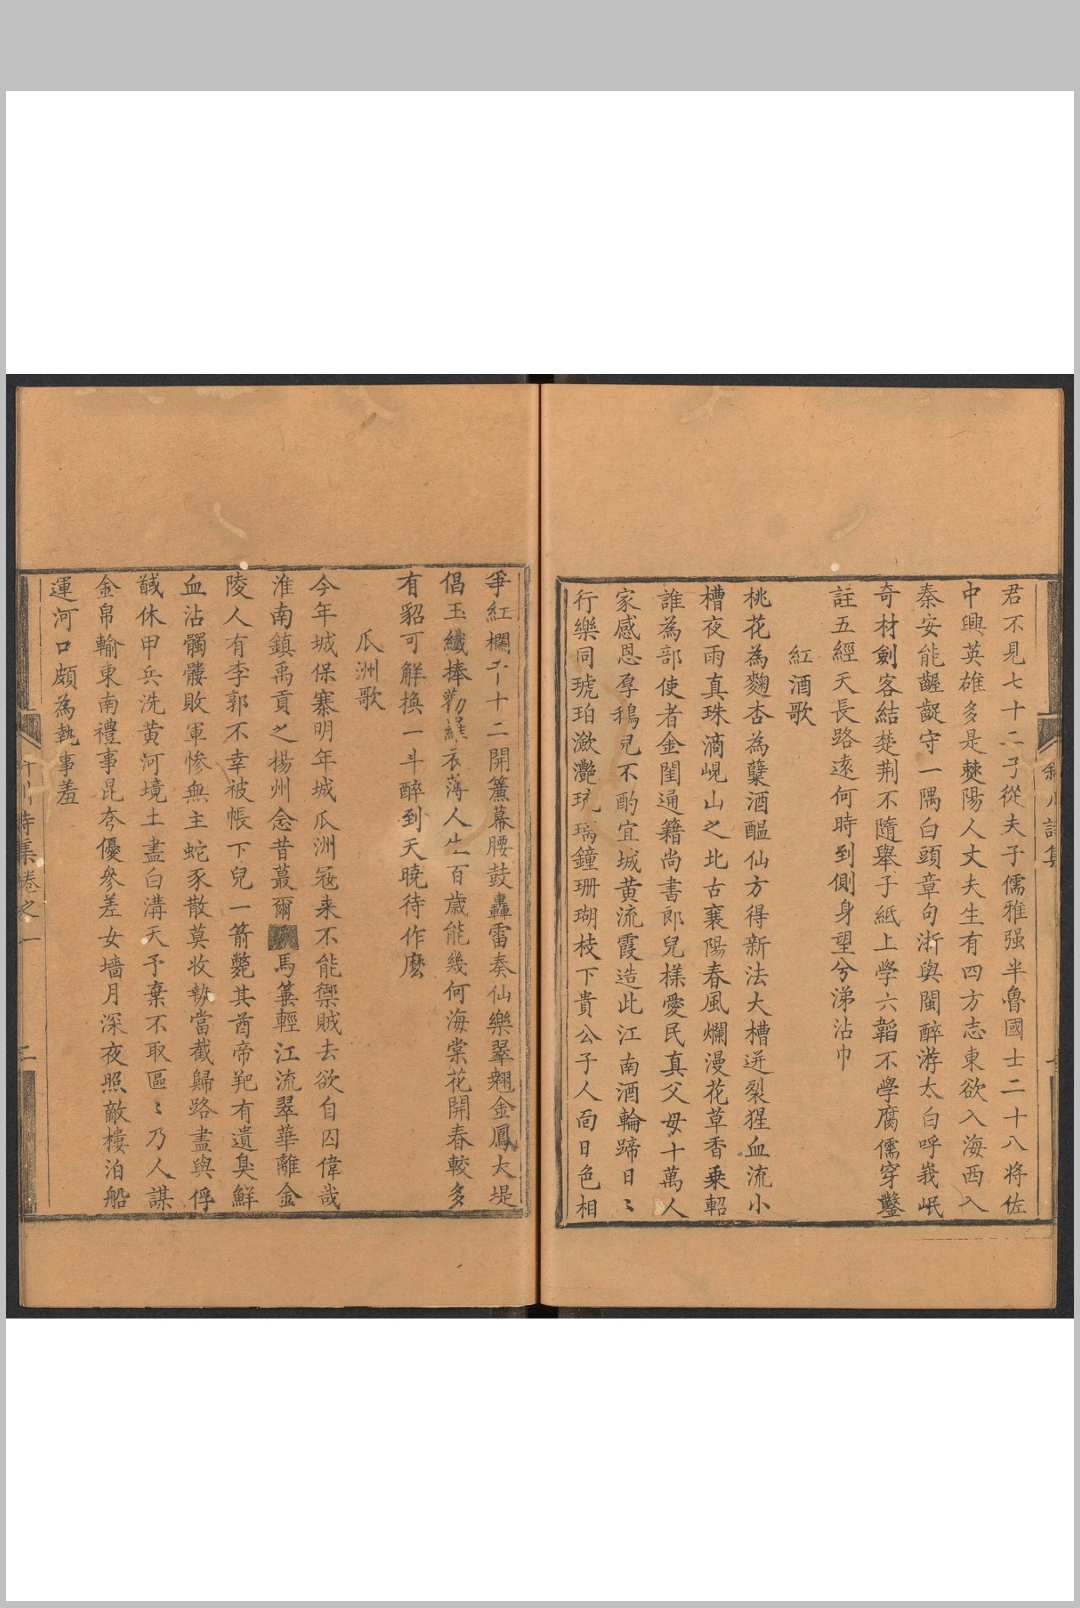 君不見七十二子從夫子儒雅强半魯國士二十八將佐
中興英雄多是棘陽人丈夫生有四方志東欲入海西入
秦安能齷齪守一隅白頭章句浙與閩醉游太白呼峩岷
奇材劍客結楚荆不隨舉子紙上學六韜不學腐儒穿鑿
註五經天長路遠何時到側身望兮涕沾巾
紅酒歌
桃花為麴杏為糵酒醞仙方得新法大槽迸裂猩血流小
槽夜雨真珠滴峴山之北古襄陽春風爛漫花草香乗軺
誰為部使者金閨通籍尚書郎兒樣愛民真父母十萬人
家感恩厚鵝兒不酌宜城黄流霞造此江南酒輪蹄日〻
行樂同琥珀瀲灔玻瓈鐘珊瑚枝下貴公子人面日色相
爭紅欄干十二開簾幕腰鼓轟雷奏仙樂翠翹金鳳大堤
倡玉纖捧勸羅衣薄人生百歲能幾何海棠花開春較多
有貂可解換一斗醉到天曉待作麽
瓜洲歌
今年城保寨明年城瓜洲冦来不能禦賊去欲自囚偉哉
淮南鎮禹貢之揚州念昔蕞爾馬簺輕江流翠華離金
陵人有李郭不幸被帳下兒一箭斃其酋帝羓有遺臭鮮
血沾髑髏敗軍慘無主蛇豕散莫收埶當截歸路盡與俘
馘休甲兵洗黄河境土盡白溝天予棄不取區〻乃人謀
金帛輸東南禮事昆夸優參差女墻月深夜照敵樓泊船
運河口頗為執事羞
詩集卷之一